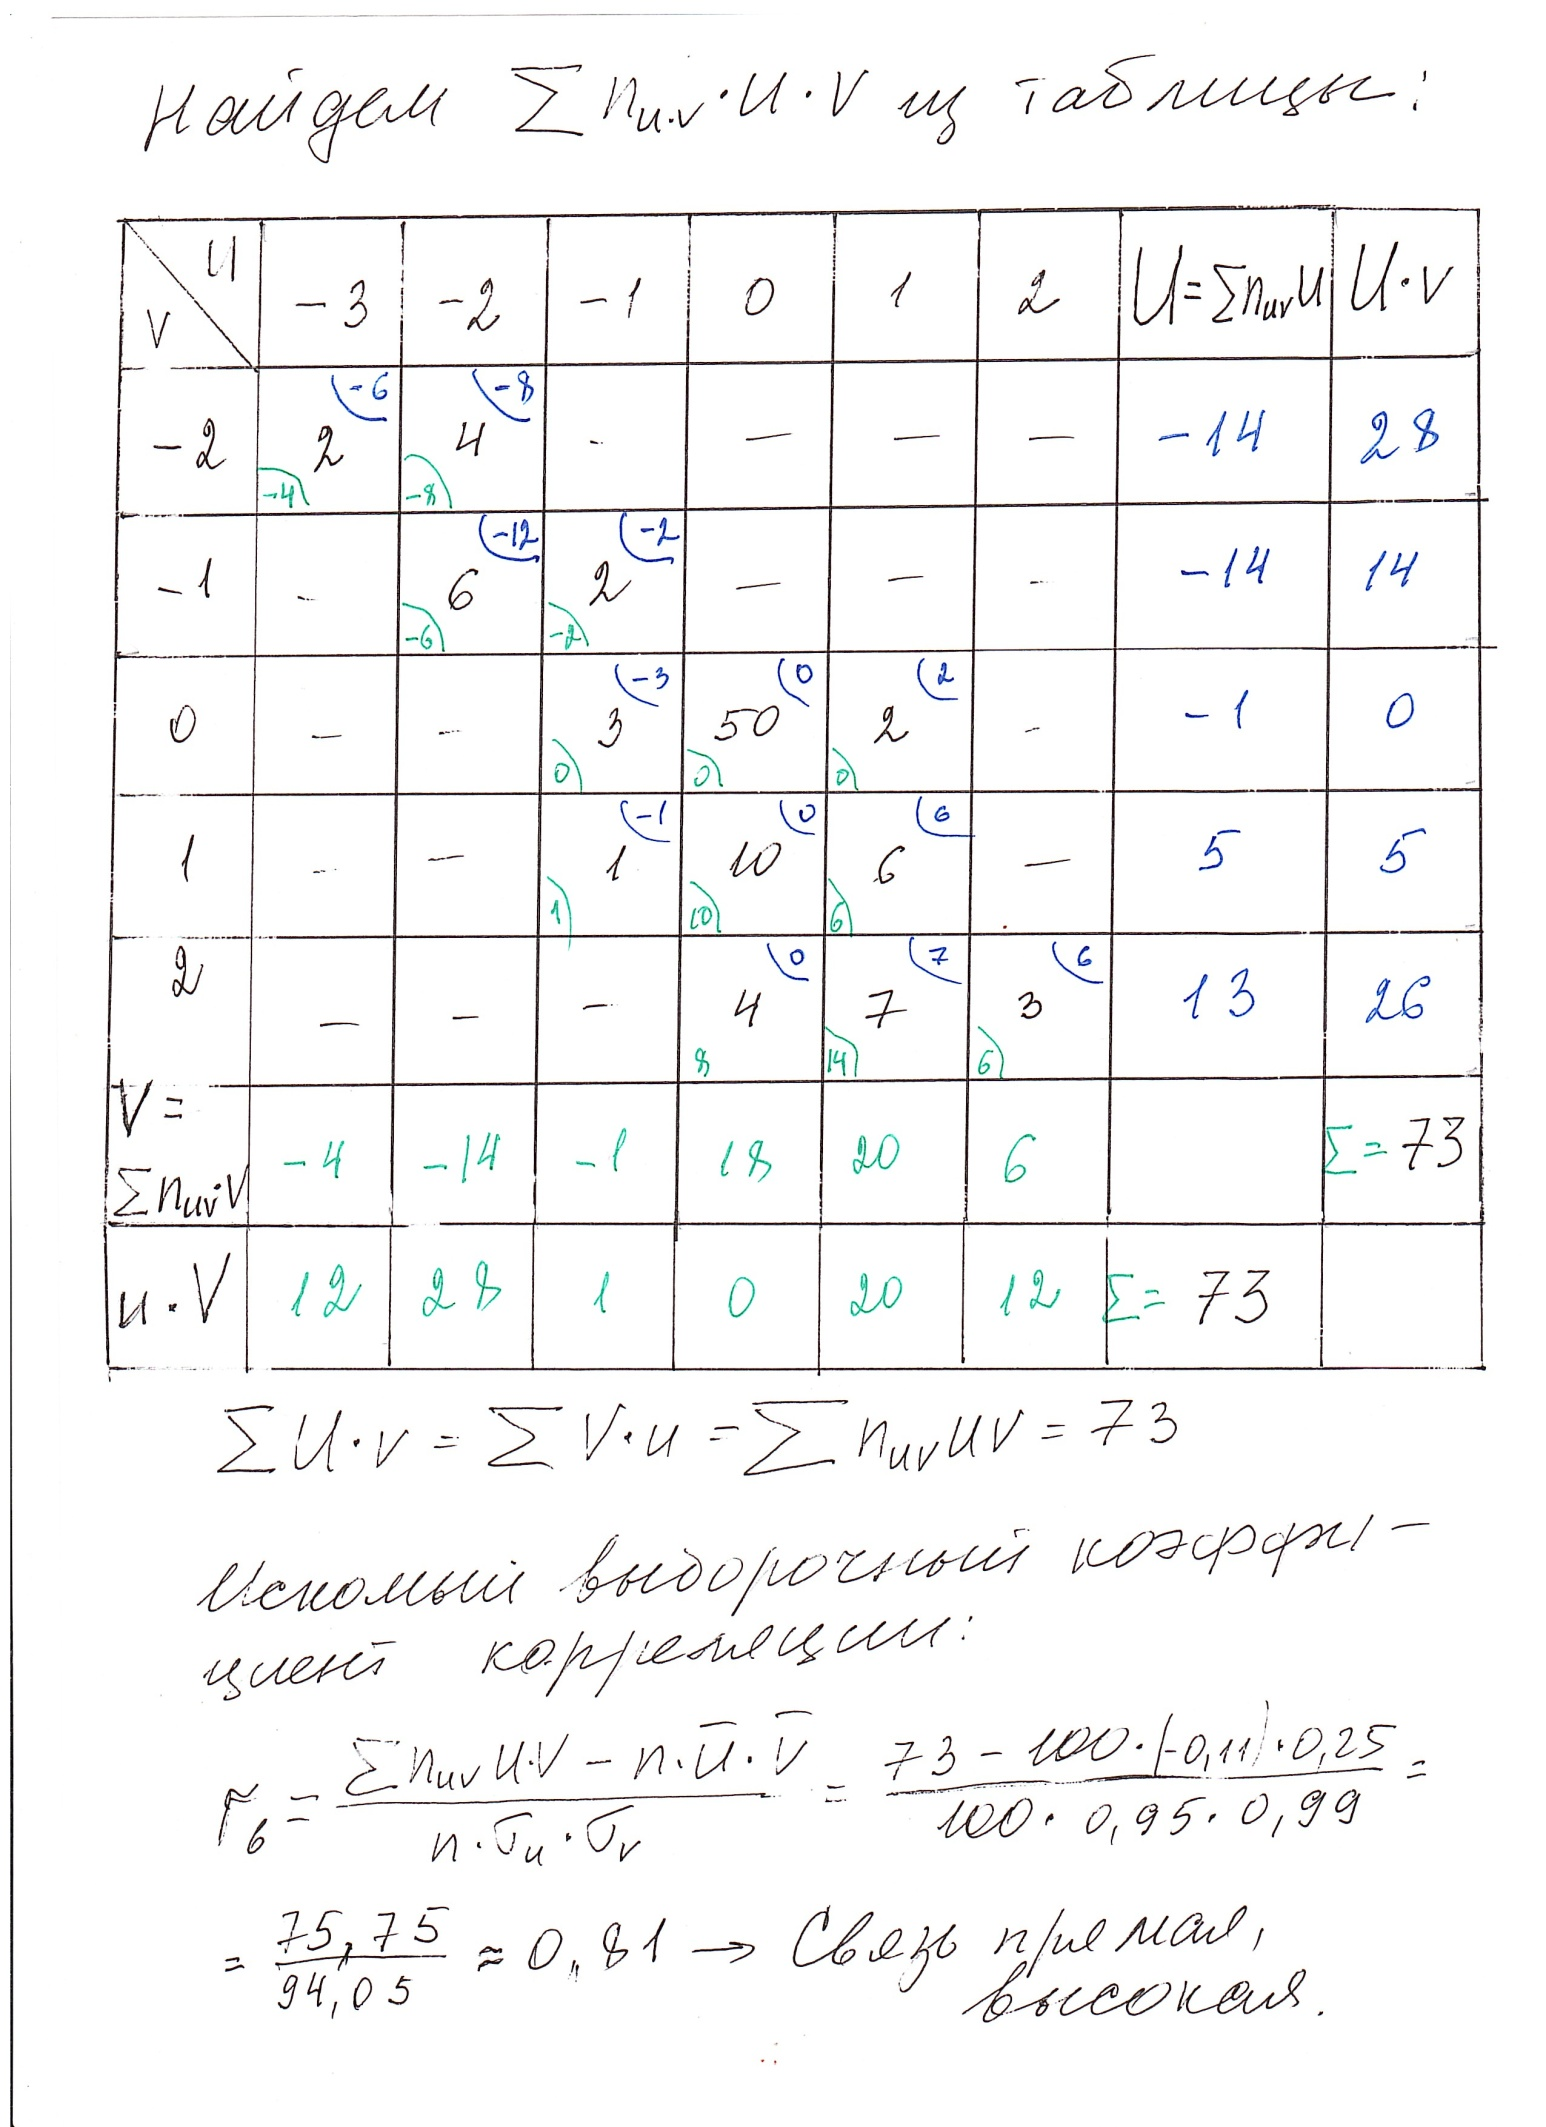 Найдем ∑ nu.v · u · v из таблицы:
u
v
-3 -2 -1 0 1 2 U=∑nuvu U·v
-2 2 (-6 -4) 4 (-8 -8) - — — — -14 28
-1 - 6 (-12 -6) 2 (-2 -2) — - - -14 14
0 - - 3 (-3 0) 50 (0 0) 2 (2 0) - -1 0
1 - - 1 (-1 1) 10 (0 10) 6 (6 6) — 5 5
2 - - - 4 (0 8) 7 (7 14) 3 (6 6) 13 26
V = ∑nuv·v -4 -14 -1 18 20 6 ∑=73
u·V 12 28 1 0 20 12 ∑= 73
∑ U·v = ∑ V·u = ∑ nuvuv = 73
Искомый выборочный коэффи-
циент корреляции:
r̃в = (∑nuvu·v − n·ū·v̄) / (n·σu·σv) = (73 − 100·(-0,11)·0,25) / (100·0,95·0,99) =
= 75,75 / 94,05 ≈ 0,81 → Связь прямая,
высокая.